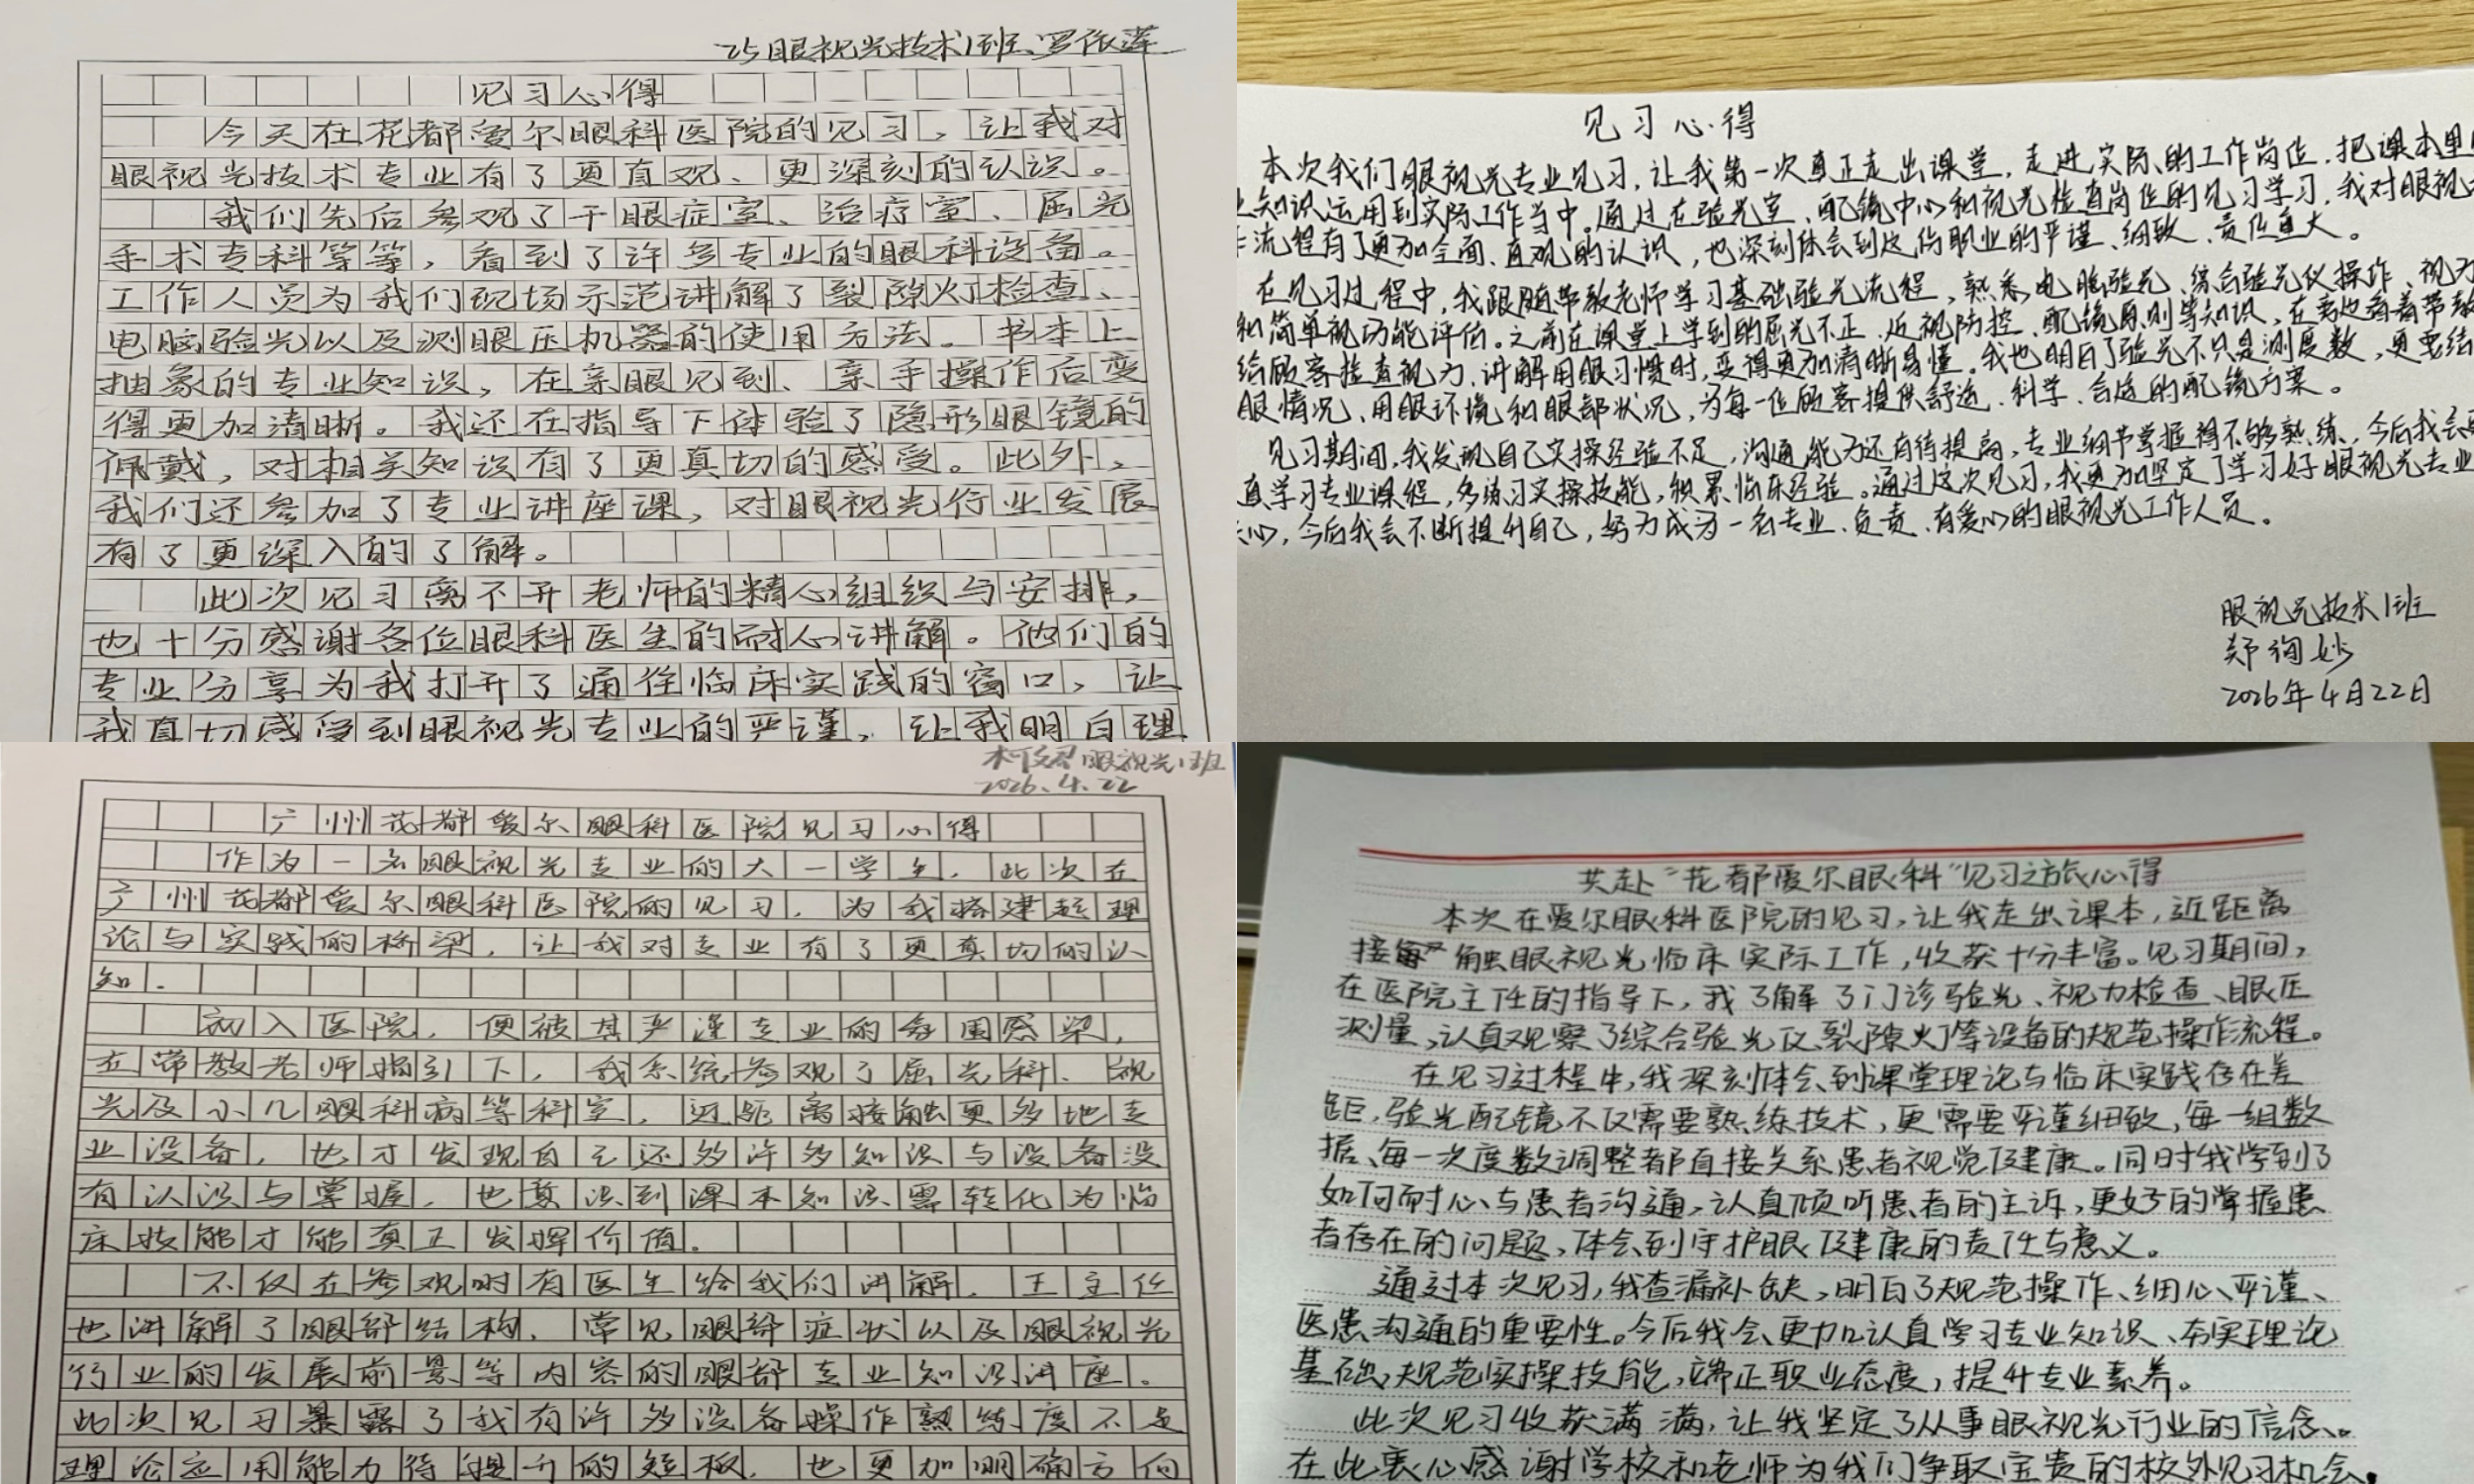 25眼视光技术1班、罗依莲
见习心得
今天在花都爱尔眼科医院的见习，让我对
眼视光技术专业有了更直观、更深刻的认识。
我们先后参观了干眼症室、治疗室、屈光
手术专科等等，看到了许多专业的眼科设备。
工作人员为我们现场示范讲解了裂隙灯检查、
电脑验光以及测眼压机器的使用方法。书本上
抽象的专业知识，在亲眼见到、亲手操作后变
得更加清晰。我还在指导下体验了隐形眼镜的
佩戴，对相关知识有了更真切的感受。此外，
我们还参加了专业讲座课，对眼视光行业发展
有了更深入的了解。
此次见习离不开老师的精心组织与安排，
也十分感谢各位眼科医生的耐心讲解。他们的
专业分享为我打开了通往临床实践的窗口，让
我真切感受到眼视光专业的严谨，让我明白理
见习心得
本次我们眼视光专业见习，让我第一次真正走出课堂，走进实际的工作岗位，把课本里
知识运用到实际工作当中。通过在验光室、配镜中心和视光检查岗位的见习学习，我对眼视
流程有了更加全面、直观的认识，也深刻体会到这份职业的严谨、细致、责任重大。
在见习过程中，我跟随带教老师学习基础验光流程，熟悉电脑验光、综合验光仪操作、视力
和简单视功能评估。之前在课堂上学到的屈光不正、近视防控、配镜原则等知识，在旁边看着带教
给顾客检查视力、讲解用眼习惯时，变得更加清晰易懂。我也明白了验光不只是测度数，更要结
眼情况、用眼环境和眼部状况，为每一位顾客提供舒适、科学、合适的配镜方案。
见习期间，我发现自己实操经验不足，沟通能力还有待提高，专业细节掌握得不够熟练，今后我会
真学习专业课程，多练习实操技能，积累临床经验。通过这次见习，我更加坚定了学习好眼视光专业
心，今后我会不断提升自己，努力成为一名专业、负责、有爱心的眼视光工作人员。
眼视光技术1班
郑询妙
2026年4月22日
眼视光1班
2026.4.22
广州花都爱尔眼科医院见习心得
作为一名眼视光专业的大一学生，此次在
广州花都爱尔眼科医院的见习，为我搭建起理
论与实践的桥梁，让我对专业有了更真切的认
知。
初入医院，便被其严谨专业的氛围感染，
在带教老师指引下，我系统参观了屈光科、视
光及小儿眼科病等科室，近距离接触更多地专
业设备，也才发现自己还多许多知识与设备没
有认识与掌握，也意识到课本知识需转化为临
床技能才能真正发挥价值。
不仅在参观时有医生给我们讲解，王主任
也讲解了眼部结构、常见眼部症状以及眼视光
行业的发展前景等内容的眼部专业知识讲座。
此次见习暴露了我有许多设备操作熟练度不足
理论应用能力待提升的短板，也更加明确方向
共赴“花都爱尔眼科”见习之旅心得
本次在爱尔眼科医院的见习，让我走出课本，近距离
接触眼视光临床实际工作，收获十分丰富。见习期间，
在医院主任的指导下，我了解了门诊验光、视力检查、眼压
测量，认真观察了综合验光仪、裂隙灯等设备的规范操作流程。
在见习过程中，我深刻体会到课堂理论与临床实践存在差
距，验光配镜不仅需要熟练技术，更需要严谨细致，每一组数
据、每一次度数调整都直接关系患者视觉健康。同时我学到了
如何耐心与患者沟通，认真倾听患者的主诉，更好的掌握患
者存在的问题，体会到守护眼健康的责任与意义。
通过本次见习，我查漏补缺，明白了规范操作、细心严谨、
医患沟通的重要性。今后我会更加认真学习专业知识、夯实理论
基础，规范实操技能，端正职业态度，提升专业素养。
此次见习收获满满，让我坚定了从事眼视光行业的信念。
在此衷心感谢学校和老师为我们争取宝贵的校外见习机会，